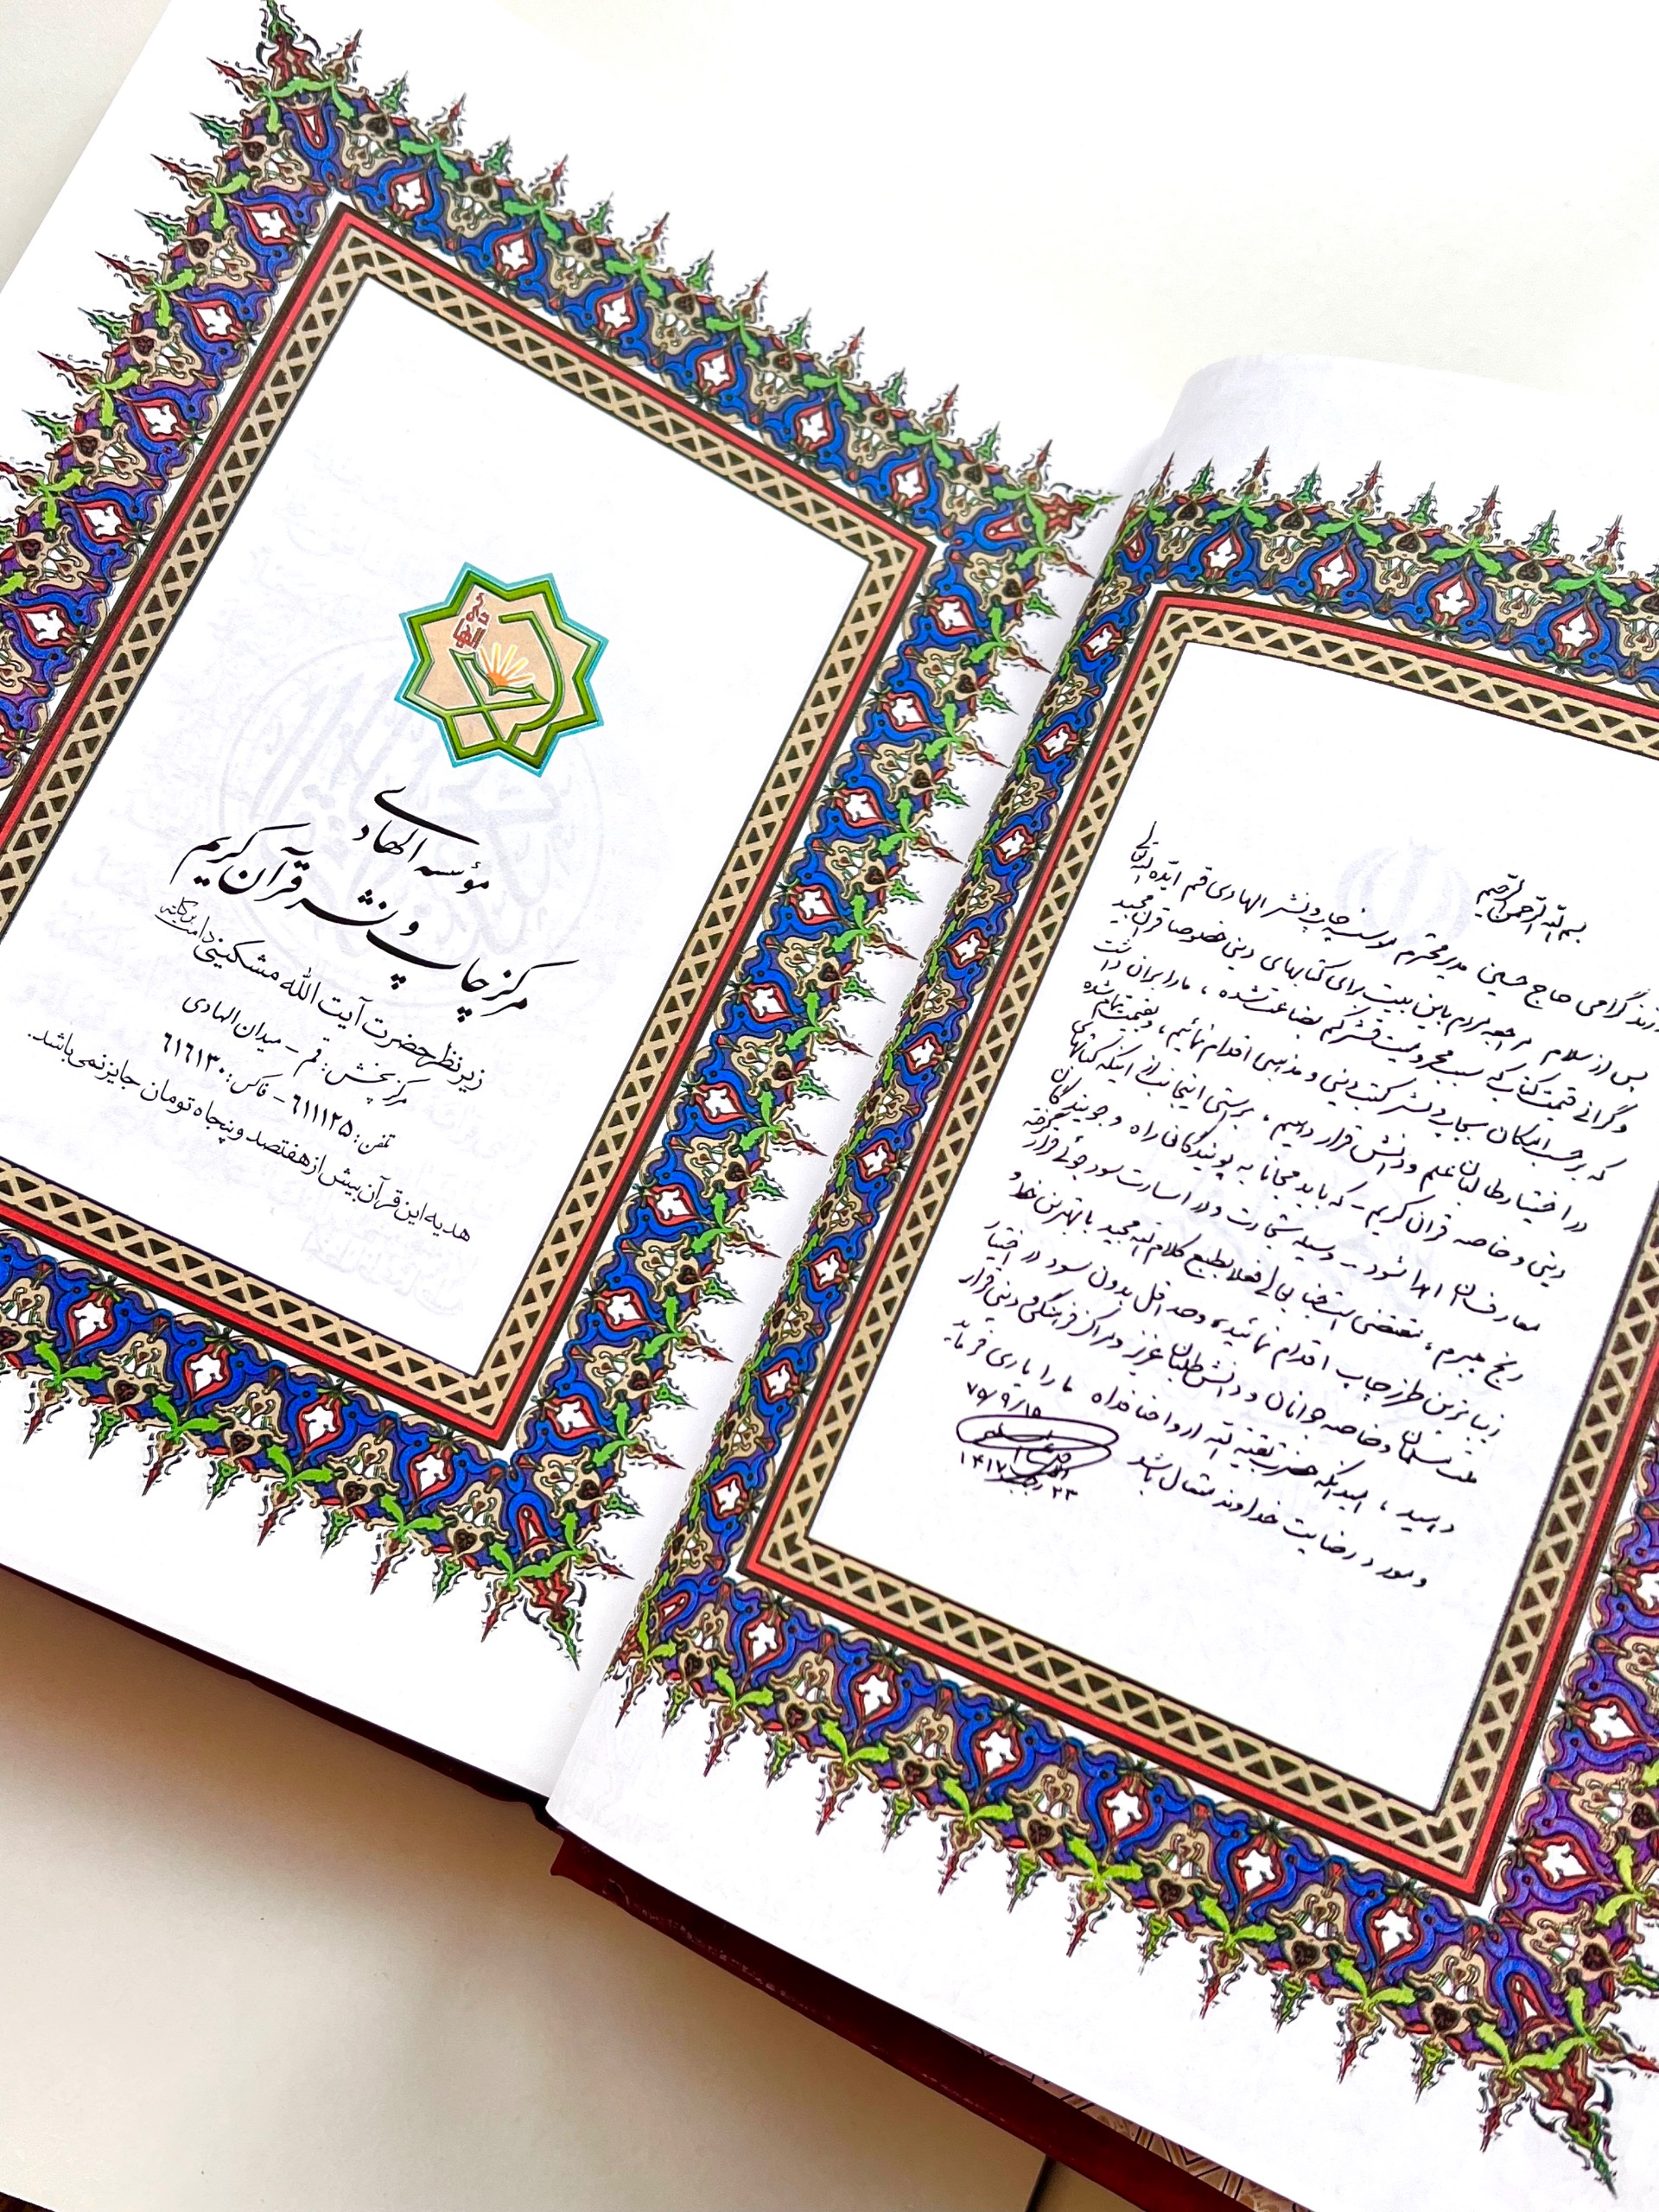 الهادی
مؤسسه الهادی
مرکز چاپ و نشر قرآن کریم
زیر نظر حضرت آیت الله مشکینی دامت برکاته
مرکز پخش: قم - میدان الهادی
تلفن: ۶۱۱۱۲۵ - فاکس: ۶۱۶۱۳۰
هدیه این قرآن بیش از هفتصد و پنجاه تومان جایز نمی باشد.
بسم الله الرحمن الرحیم
گرامی حاج حسینی مدیر محترم موسسه چاپ و نشر الهادی قم ایده الله تعالی
پس از سلام مراجعه مردم باین بیت برای کتابهای دینی خصوصا قرآن مجید
و گرانی قیمت کتاب که سبب محرومیت قشر کم بضاعت شده ، ما را بران داشت
که بر حسب امکان بچاپ و نشر کتب دینی و مذهبی اقدام نمائیم ، و بقیمت تمام شده
در اختیار طالبان علم و دانش قرار دهیم ، براستی اینجانب از اینکه کتابهای
دینی و خاصه قرآن کریم - که باید مجانا به پویندگان راه و جویندگان
معارف آن اهدا شود - وسیله تجارت و در اسارت سودجوئی قرار گرفته
رنج میبرم ، مقتضی است جنابعالی فعلا بطبع کلام الله مجید با بهترین خط و
زیباترین طرز چاپ اقدام نمائید ، و حداقل بدون سود در اختیار
ملت مسلمان و خاصه جوانان و دانش طلبان عزیز و مراکز فرهنگی دینی قرار
دهید ، امید آنکه حضرت بقیة الله ارواحنا فداه ما را یاری فرماید
و مورد رضایت خداوند متعال باشد
۷۵/۹/۱۵
۲۳ رجب ۱۴۱۷